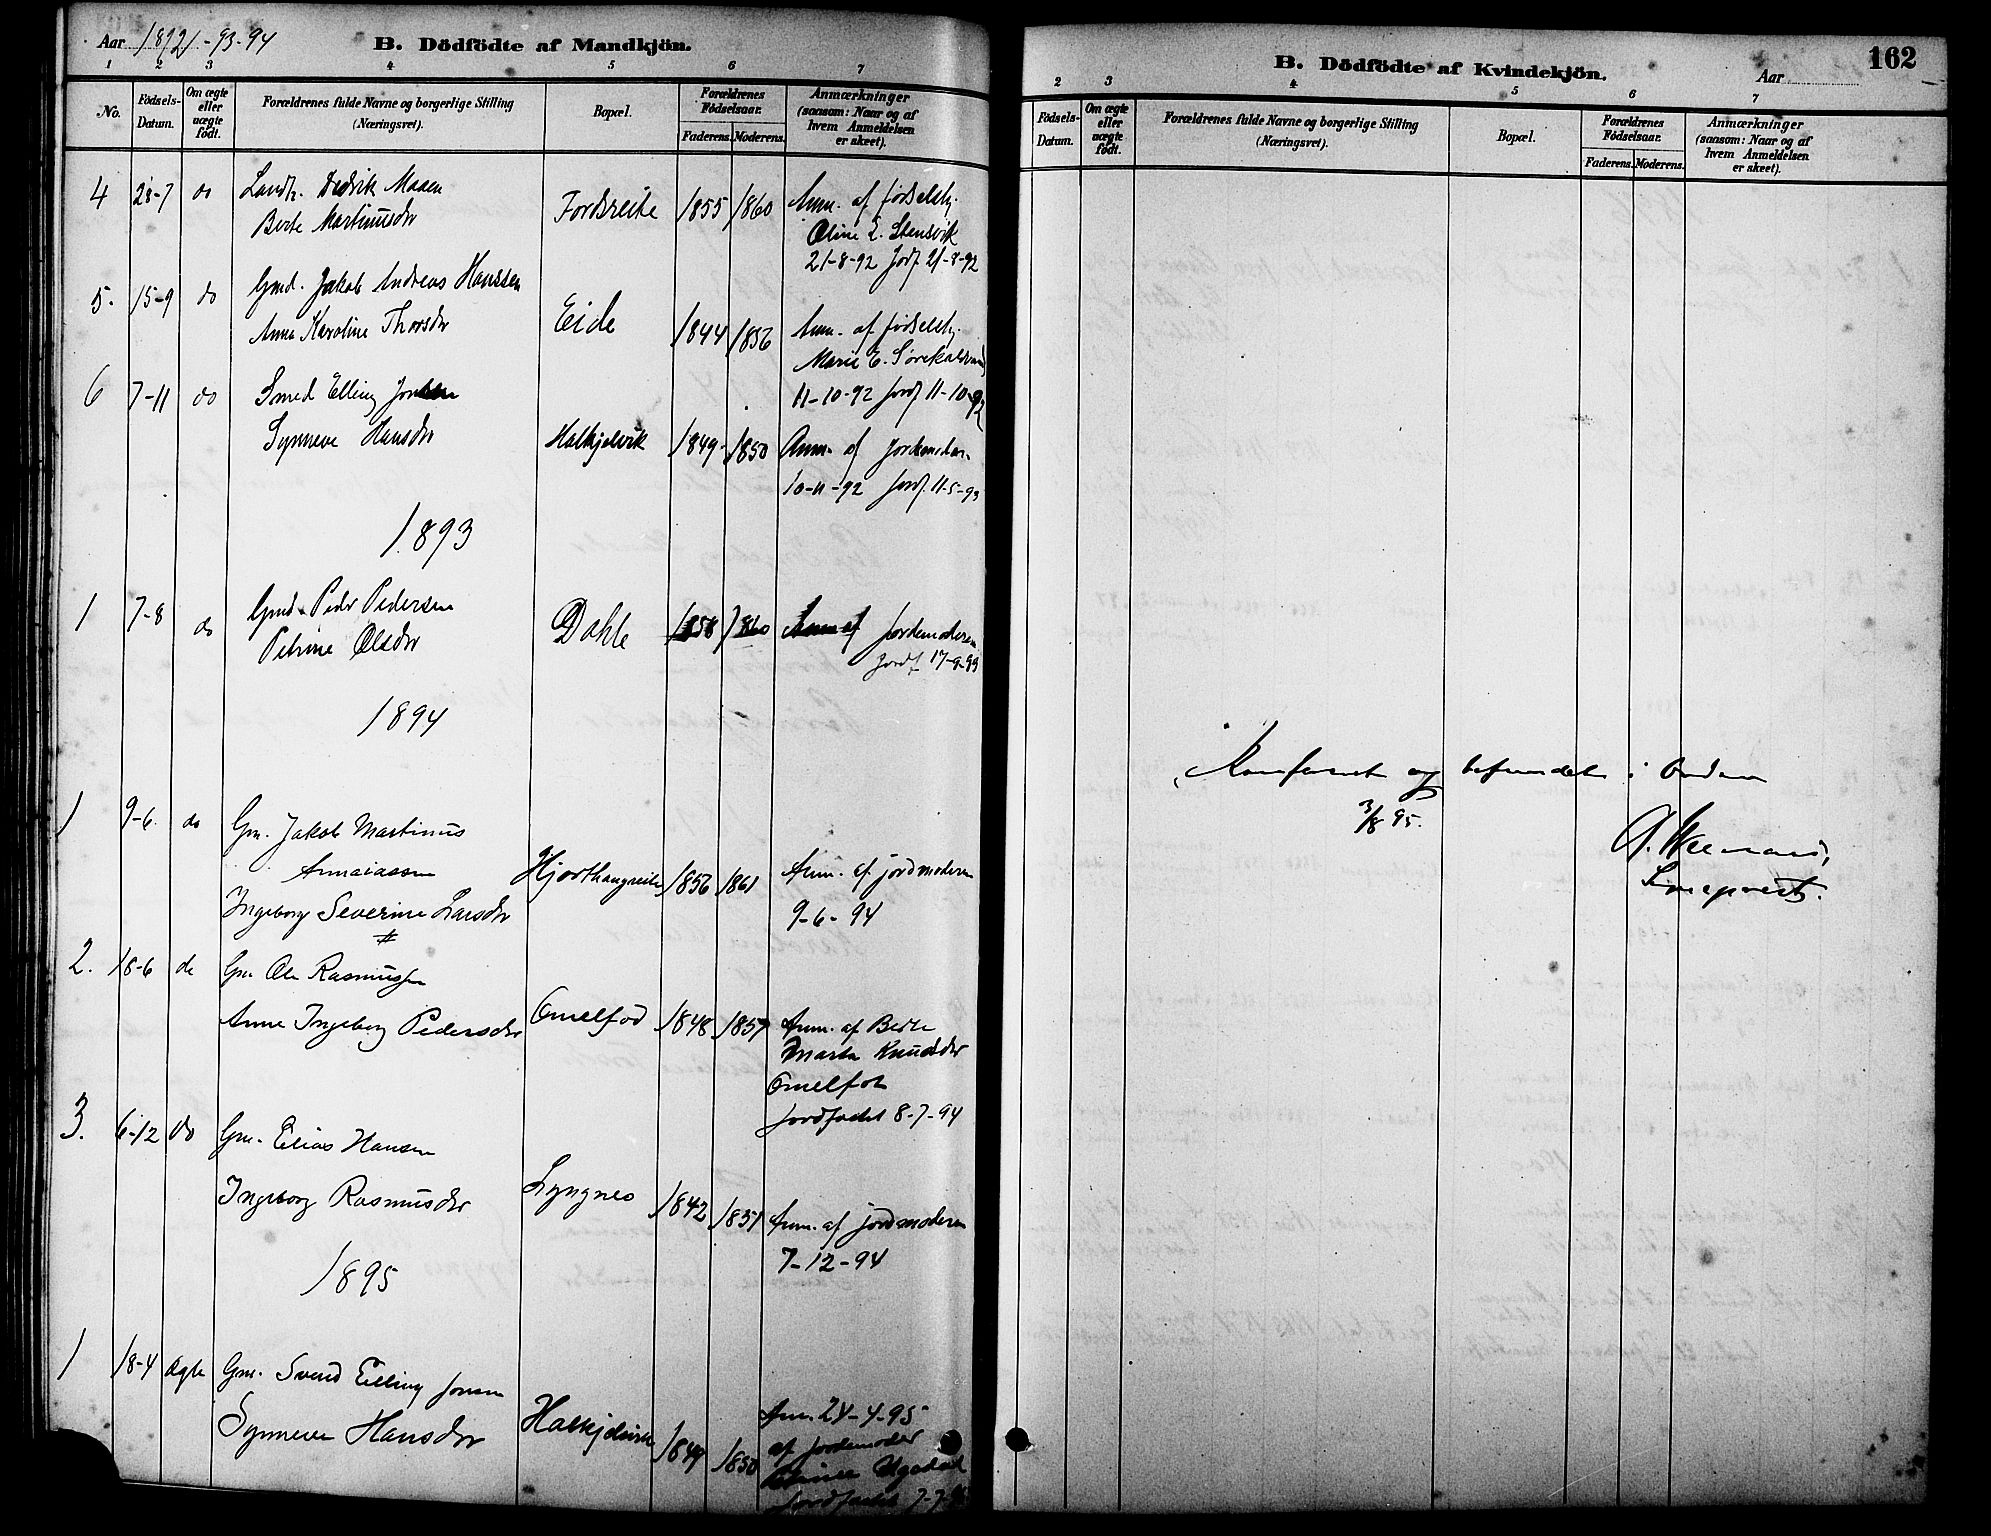 Aar 1892-93-94
B. Dödfödte af Mandkjön.
1 2 3 4 5 6 7
No. Födsels-Datum. Om ægte eller uægte födt. Forældrenes fulde Navne og borgerlige Stilling (Næringsvei). Bopæl. Forældrenes Födselsaar. Faderens. Moderens. Anmærkninger (saasom: Naar og af hvem Anmeldelsen er skeet).
4 28-7 do Landh. Didrik Maaen Fordsreite 1855 1860 Anm. af fødselshj.
Berte Martinusdr Oline E. Stensvik
21-8-92 Jordf 21-8-92
5. 15-9 do Gmd. Jakob Andreas Hanssen
Anne Karoline Thorsdr Eide 1844 1856 Anm. af fødselshj.
Marie E.
6 7-11 do Smed Elling Jonsen 11-10-92 Jordf 11-10-92
Synneve Hansdr Halkjelsvik 1849 1850 Anm. af Jordemoderen
10-11-92 Jordf. 11-5-93
1893
1 7-8 do Gmd. Peder Pedersen
Petrine Olsdr Dahle 1858 1860 Anm af Jordemoderen
Jordf 17-9-93
1894
1 9-6. do Gm. Jakob Martinus
Hjorthaugreiten 1856 1861 Anm. af jordmoderen
Ingeborg Severine Larsdr 9-6-94
2. 18-6 do Gm Ole Rasmussen
Anne Ingeborg Pedersdr Omelfod 1848 1857 Anm. af Berte
Marta Knudsdr
Omelfot
jordfæstet 8-7-94
3. 6-12 do Gm. Elias Hansen
Ingeborg Rasmusdr Lyngnes 1842 1851 Anm. af jordmoderen
7-12-94
1895
1 18-4 ægte Gm. Svend Elling Jonsen
Synneve Hansdr Halkjelsvik 1849 1850 Anm. 24-4-95
af jordemoder
Ugedal
jordfæstet
162
B. Dödfödte af Kvindekjön.
Aar
2 3 4 5 6 7
Födsels-Datum. Om ægte eller uægte födt. Forældrenes fulde Navne og borgerlige Stilling (Næringsvei). Bopæl. Forældrenes Födselsaar. Faderens. Moderens. Anmærkninger (saasom: Naar og af hvem Anmeldelsen er skeet).
Konfereret og befundet i Orden
3/8 95.
Sogneprest.